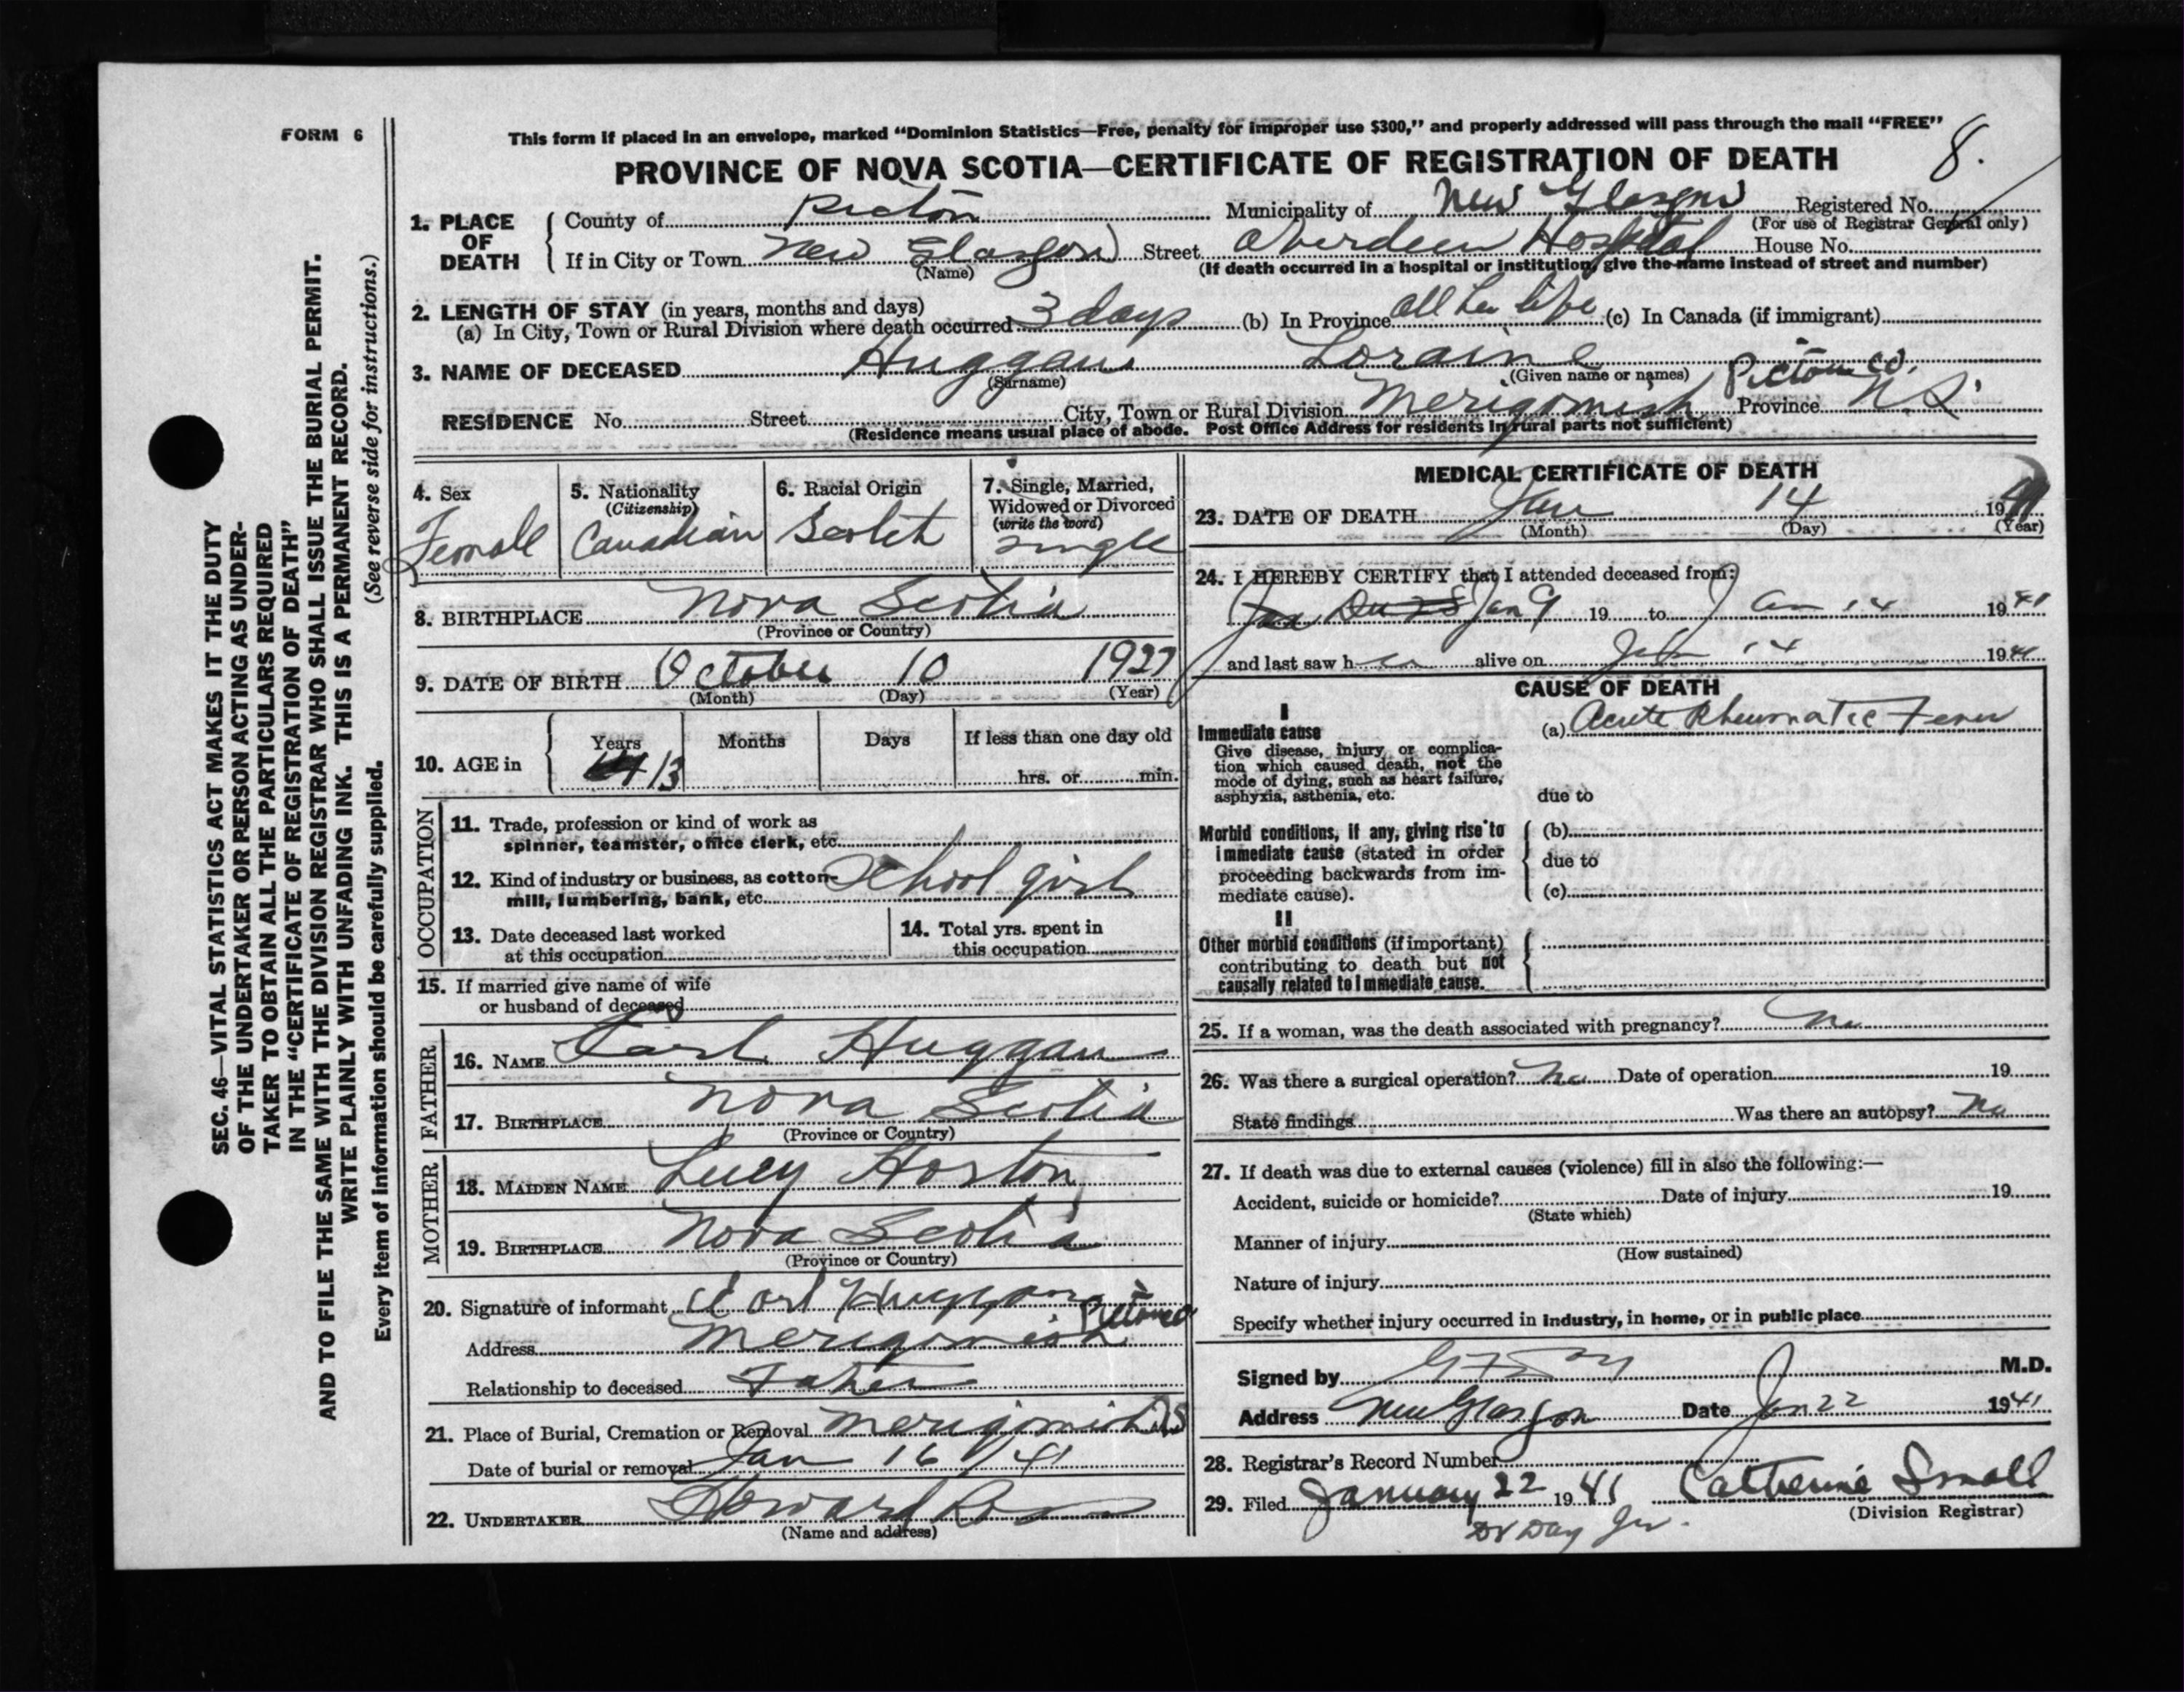 FORM 6
This form if placed in an envelope, marked "Dominion Statistics—Free, penalty for improper use $300," and properly addressed will pass through the mail "FREE"
PROVINCE OF NOVA SCOTIA—CERTIFICATE OF REGISTRATION OF DEATH
8.
1. PLACE OF DEATH
County of Pictou Municipality of New Glasgow Registered No.
(For use of Registrar General only)
If in City or Town New Glasgow Street Aberdeen Hospital House No.
(Name) (If death occurred in a hospital or institution, give the name instead of street and number)
2. LENGTH OF STAY (in years, months and days)
(a) In City, Town or Rural Division where death occurred 3 days (b) In Province all her life (c) In Canada (if immigrant)
3. NAME OF DECEASED Huggan Loraine
(Surname) (Given name or names)
Pictou Co.
RESIDENCE No. Street City, Town or Rural Division Merigomish Province N.S.
(Residence means usual place of abode. Post Office Address for residents in rural parts not sufficient)
4. Sex
Female
5. Nationality
(Citizenship)
Canadian
6. Racial Origin
Scotch
7. Single, Married,
Widowed or Divorced
(write the word)
single
8. BIRTHPLACE Nova Scotia
(Province or Country)
9. DATE OF BIRTH October 10 1927
(Month) (Day) (Year)
10. AGE in
Years Months Days If less than one day old
13 hrs. or min.
OCCUPATION
11. Trade, profession or kind of work as
spinner, teamster, office clerk, etc.
12. Kind of industry or business, as cotton-
mill, lumbering, bank, etc. School girl
13. Date deceased last worked
at this occupation
14. Total yrs. spent in
this occupation
15. If married give name of wife
or husband of deceased
FATHER
16. NAME Earl Huggan
17. BIRTHPLACE Nova Scotia
(Province or Country)
MOTHER
18. MAIDEN NAME Lucy Horton
19. BIRTHPLACE Nova Scotia
(Province or Country)
20. Signature of informant Earl Huggan
Address Merigomish Pictou Co
Relationship to deceased Father
21. Place of Burial, Cremation or Removal Merigomish NS
Date of burial or removal Jan 16/41
22. UNDERTAKER Howard Ross
(Name and address)
MEDICAL CERTIFICATE OF DEATH
23. DATE OF DEATH Jan 14 1941
(Month) (Day) (Year)
24. I HEREBY CERTIFY that I attended deceased from:
Jan 9 19 to Jan 14 1941
and last saw her alive on Jan 14 1941
CAUSE OF DEATH
I
Immediate cause
(a) Acute Rheumatic Fever
Give disease, injury, or complica-
tion which caused death, not the
mode of dying, such as heart failure,
asphyxia, asthenia, etc.
due to
Morbid conditions, if any, giving rise to
immediate cause (stated in order
proceeding backwards from im-
mediate cause).
(b)
due to
(c)
II
Other morbid conditions (if important)
contributing to death but not
causally related to immediate cause.
25. If a woman, was the death associated with pregnancy? No
26. Was there a surgical operation? No Date of operation 19
State findings Was there an autopsy? No
27. If death was due to external causes (violence) fill in also the following:—
Accident, suicide or homicide? Date of injury 19
(State which)
Manner of injury
(How sustained)
Nature of injury
Specify whether injury occurred in industry, in home, or in public place
Signed by M.D.
Address New Glasgow Date Jan 22 1941
28. Registrar's Record Number
29. Filed January 22 1941 Catherine Small
(Division Registrar)
Dr Day Jr.
SEC. 46—VITAL STATISTICS ACT MAKES IT THE DUTY
OF THE UNDERTAKER OR PERSON ACTING AS UNDER-
TAKER TO OBTAIN ALL THE PARTICULARS REQUIRED
IN THE "CERTIFICATE OF REGISTRATION OF DEATH"
AND TO FILE THE SAME WITH THE DIVISION REGISTRAR WHO SHALL ISSUE THE BURIAL PERMIT.
WRITE PLAINLY WITH UNFADING INK. THIS IS A PERMANENT RECORD.
(See reverse side for instructions.)
Every item of information should be carefully supplied.